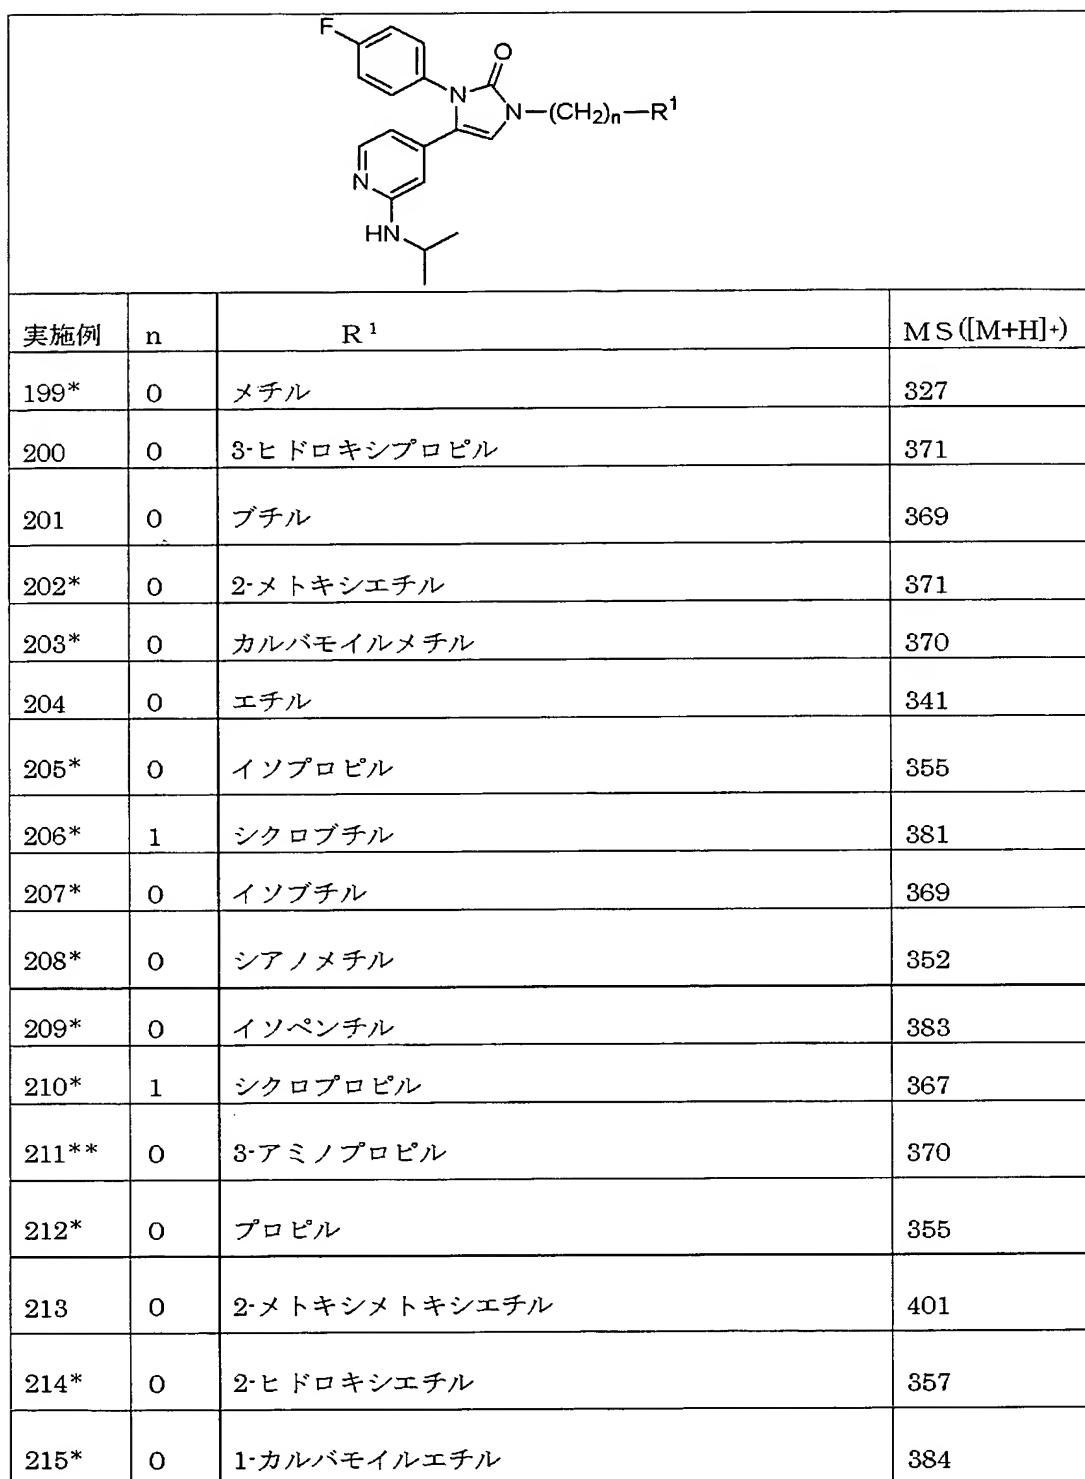 F
O
N
N—(CH2)n—R¹
N
HN
実施例 n R¹ MS([M+H]+)
199* 0 メチル 327
200 0 3-ヒドロキシプロピル 371
201 0 ブチル 369
202* 0 2-メトキシエチル 371
203* 0 カルバモイルメチル 370
204 0 エチル 341
205* 0 イソプロピル 355
206* 1 シクロブチル 381
207* 0 イソブチル 369
208* 0 シアノメチル 352
209* 0 イソペンチル 383
210* 1 シクロプロピル 367
211** 0 3-アミノプロピル 370
212* 0 プロピル 355
213 0 2-メトキシメトキシエチル 401
214* 0 2-ヒドロキシエチル 357
215* 0 1-カルバモイルエチル 384